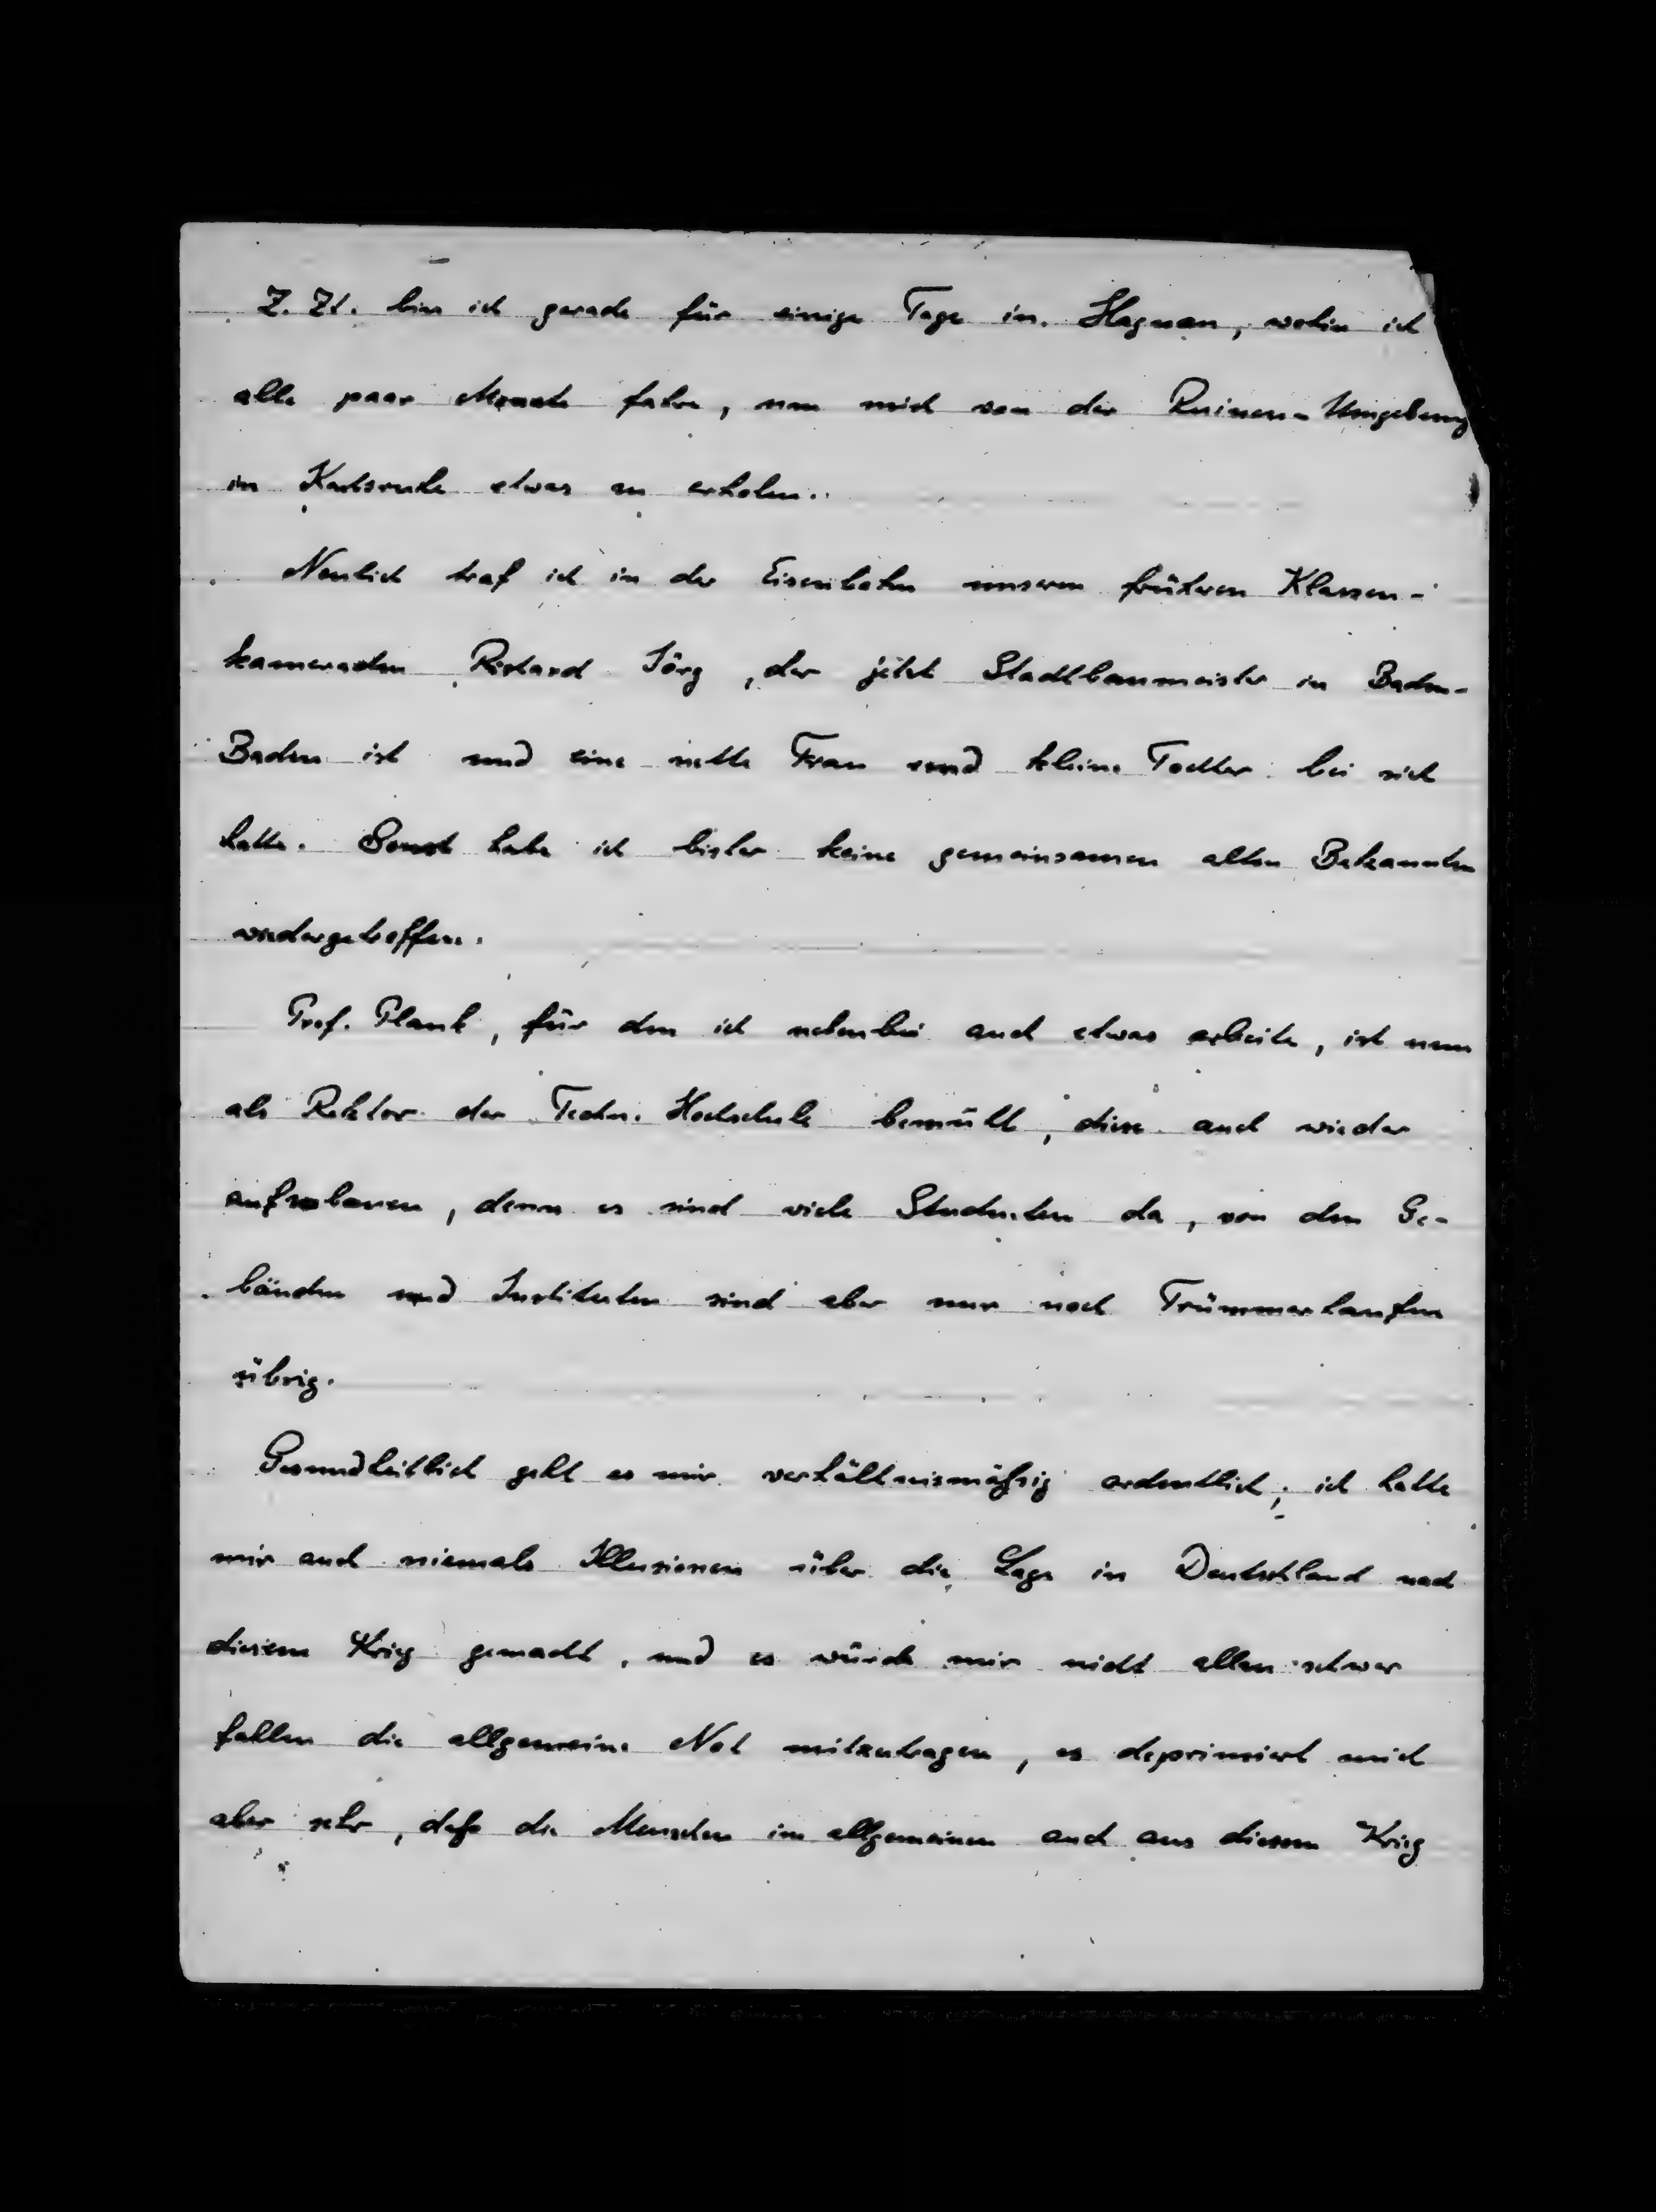 Z. Zt. bin ich gerade für einige Tage in Hagnau, wohin ich
alle paar Monate fahre, um mich von der Ruinen-Umgebung
in Karlsruhe etwas zu erholen.
Neulich traf ich in der Eisenbahn unseren früheren Klassen-
kameraden Richard Jörg, der jetzt Stadtbaumeister in Baden-
Baden ist und eine nette Frau und kleine Tochter bei sich
hatte. Sonst habe ich bisher keine gemeinsamen alten Bekannten
wiedergetroffen.
Prof. Plank, für den ich nebenbei auch etwas arbeite, ist nun
als Rektor der Techn. Hochschule bemüht, diese auch wieder
aufzubauen, denn es sind viele Studenten da, von den Ge-
bäuden und Instituten sind aber nur noch Trümmerhaufen
übrig.
Gesundheitlich geht es mir verhältnismäßig ordentlich; ich hatte
mir auch niemals Illusionen über die Lage in Deutschland nach
diesem Krieg gemacht, und es würde mir nicht allzu schwer
fallen die allgemeine Not mitzutragen, es deprimiert mich
aber sehr, daß die Menschen im allgemeinen auch aus diesem Krieg